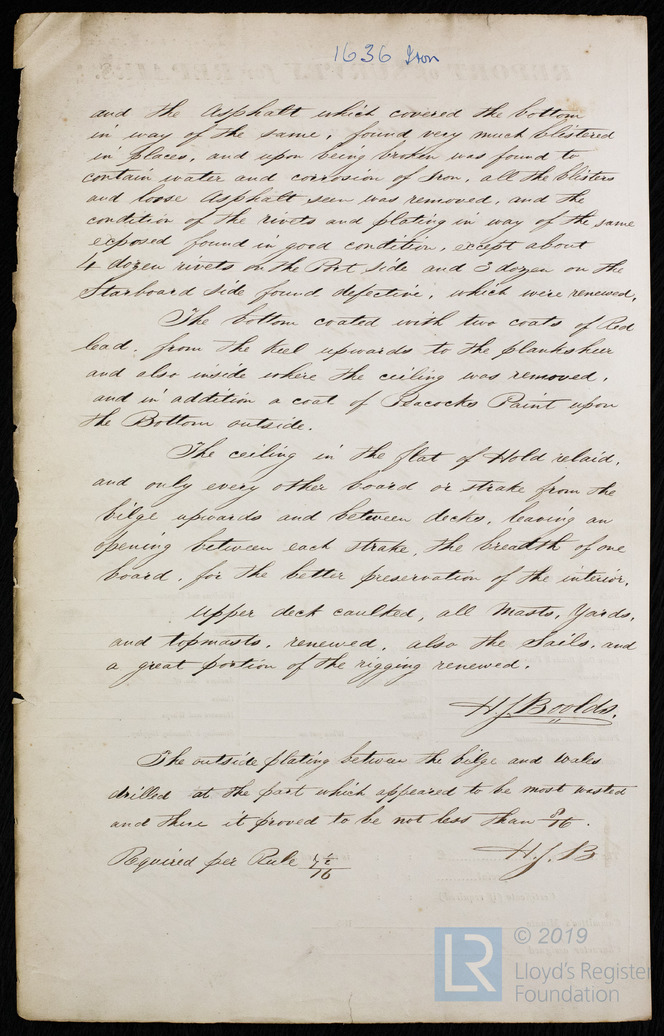 1636 Iron
and the Asphalt which covered the bottom
in way of the same, found very much blistered
in places, and upon being broken was found to
contain water and corrosion of Iron, all the blisters
and loose Asphalt seen was removed, and the
condition of the rivets and plating in way of the same
exposed found in good condition, except about
4 dozen rivets on the Port side and 3 dozen on the
Starboard side found defective, which were renewed,
The bottom coated with two coats of Red
lead, from the keel upwards to the planksheer
and also inside where the ceiling was removed,
and in addition a coat of Peacocks Paint upon
the Bottom outside.
The ceiling in the flat of Hold relaid,
and only every other board or strake from the
bilge upwards and between decks, leaving an
opening between each strake, the breadth of one
board, for the better preservation of the interior,
Upper deck caulked, all Masts, Yards,
and topmasts, renewed, also the Sails, and
a great portion of the rigging renewed.
H J Boolds.
The outside plating between the bilge and wales
drilled at the part which appeared to be most wasted
and there it proved to be not less than 8/16.
H. J. B
Required per Rule /16
© 2019
LR
Lloyd's Register
Foundation